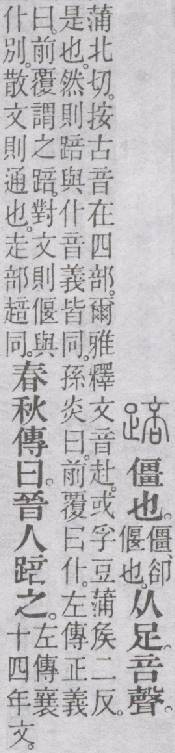 踣 僵也。僵、卻
偃也。
从足。咅聲。
蒲北切。按古音在四部。爾雅釋文音赴。或孚豆蒲矦二反。
是也。然則踣與仆音義皆同。孫炎曰。前覆曰仆。左傳正義
曰。前覆謂之踣。對文則偃與
仆別。散文則通也。走部䞳同。
春秋傳曰。晉人踣之。
左傳襄
十四年文。